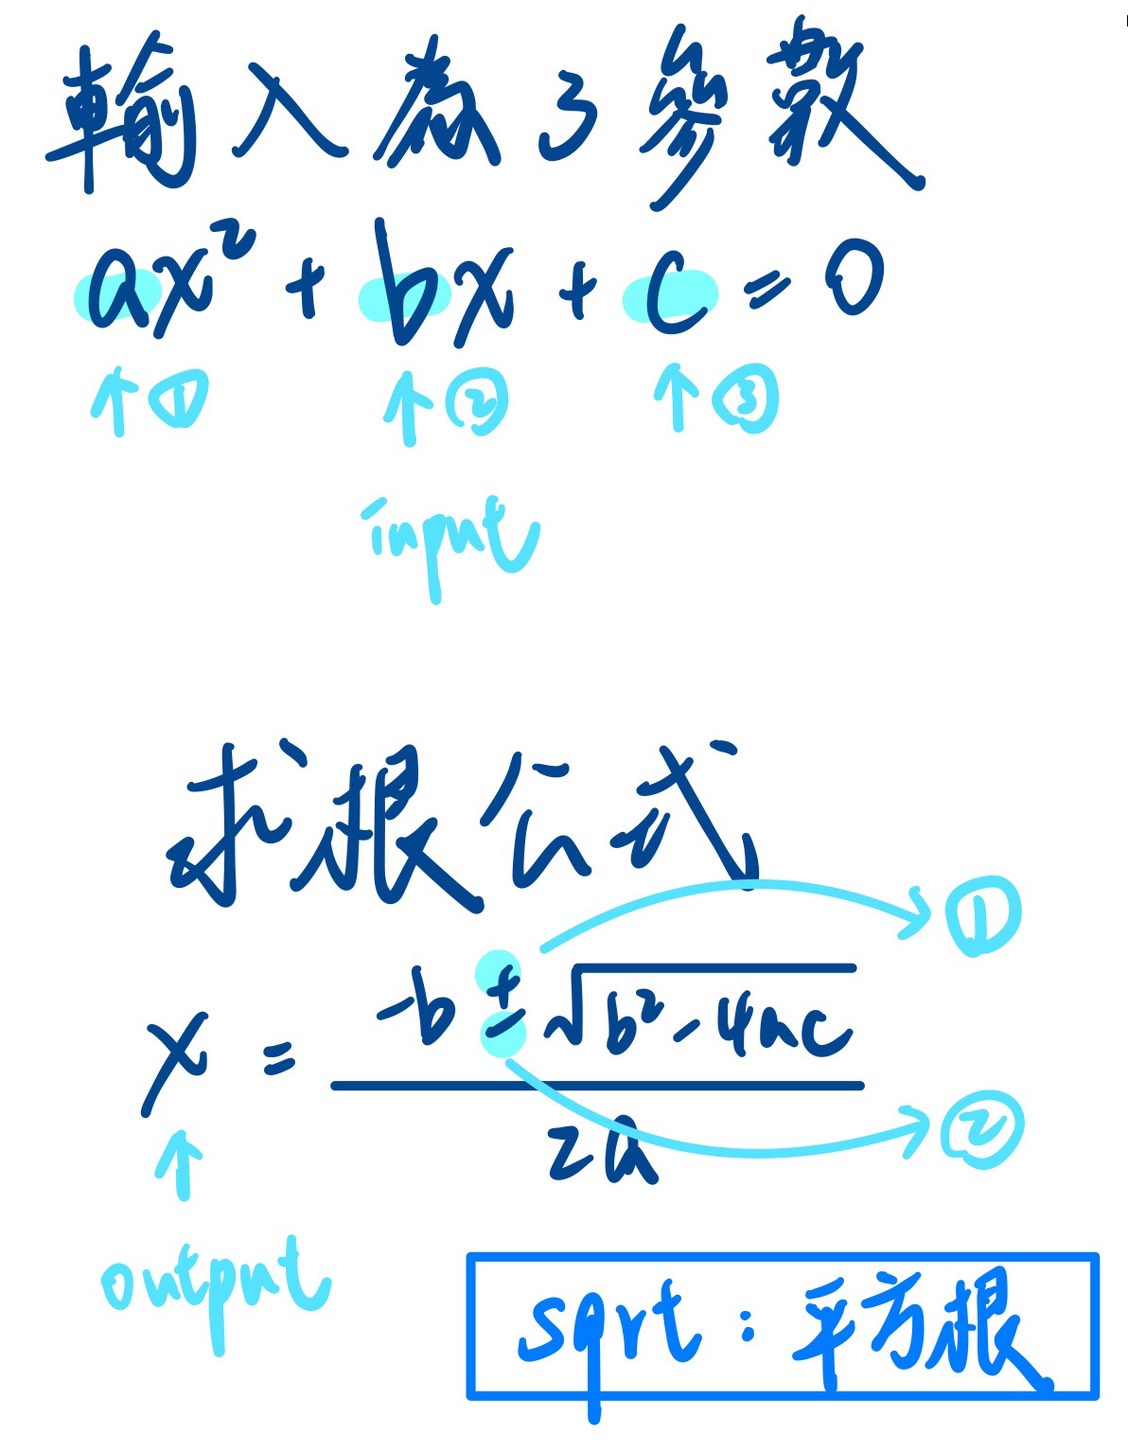 輸入為3參數
ax² + bx + c = 0
↑① ↑② ↑③
input
求根公式
①
x = (-b ± √(b²-4ac)) / 2a
②
↑
output
sqrt：平方根